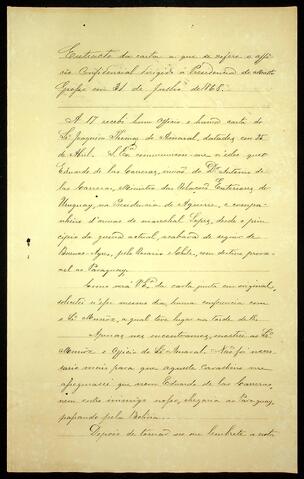 Extracto da carta a que se refere o offi-
cio Confidencial dirigido á Presidencia de Matto
Grosso em 31 de Julho de 1868.
A 17 recebi hum Officio e huma carta do
Sr. Joaquim Thomaz do Amaral, datadas em 14
de Abril. S. Exa. communicou-me n'elles que
Eduardo de las Carreras, irmão de Dr. Antonio de
las Carreras, Ministro das Relações Exteriores do
Uruguay, na Presidencia de Aguirre, e compa-
nheiro d'armas do marechal Lopez, desde o prin-
cipio da guerra actual, acabava de seguir de
Buenos-Ayres, pelo Rosario e Chile, com destino prova-
vel ao Paraguay.
Como verá V. Exa. da carta junta em original,
solicitei n'esse mesmo dia huma conferencia com
o Sr. Muñoz, a qual teve lugar na tarde de 18.
Apenas nos encontramos, mostrei ao Sr.
Muñoz o Officio do Sr. Amaral. Não foi neces-
sario mais para que aquelle Cavalheiro me
assegurasse que nem Eduardo de las Carreras,
nem outro inimigo nosso, chegaria ao Paraguay,
passando pela Bolivia.
Depois de tomar em um lembrete a nota